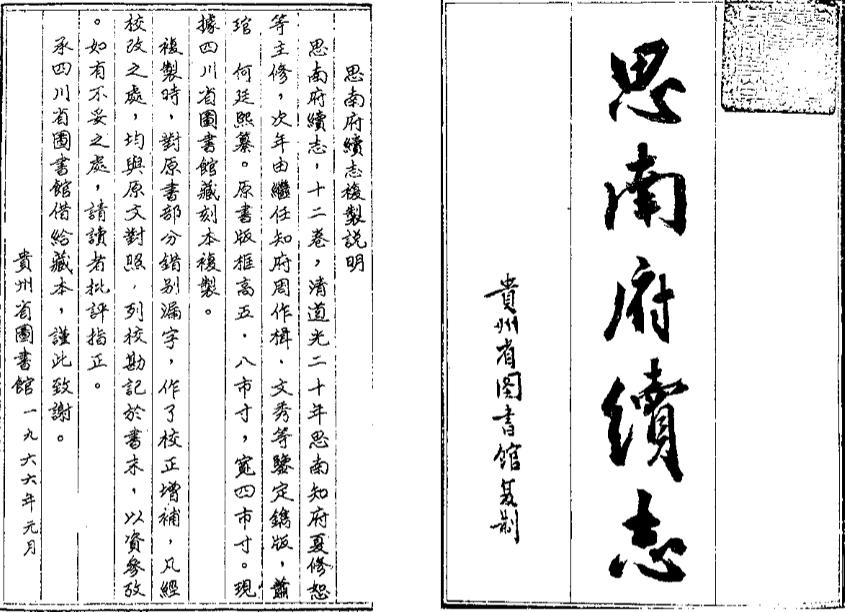 思南府續志
貴州省图書館复制
思南府續志複製説明
思南府續志，十二卷，清道光二十年思南知府夏修恕
等主修，次年由繼任知府周作楫、文秀等鑒定鐫版，蕭
琯 何廷熙纂。原書版框高五．八市寸，寬四市寸。現
據四川省圖書館藏刻本複製。
複製時，對原書部分錯别漏字，作了校正增補，凡經
校改之處，均與原文對照，列校勘記於書末，以資參攷
。如有不妥之處，請讀者批評指正。
承四川省圖書館借給藏本，謹此致謝。
貴州省圖書館 一九六六年元月